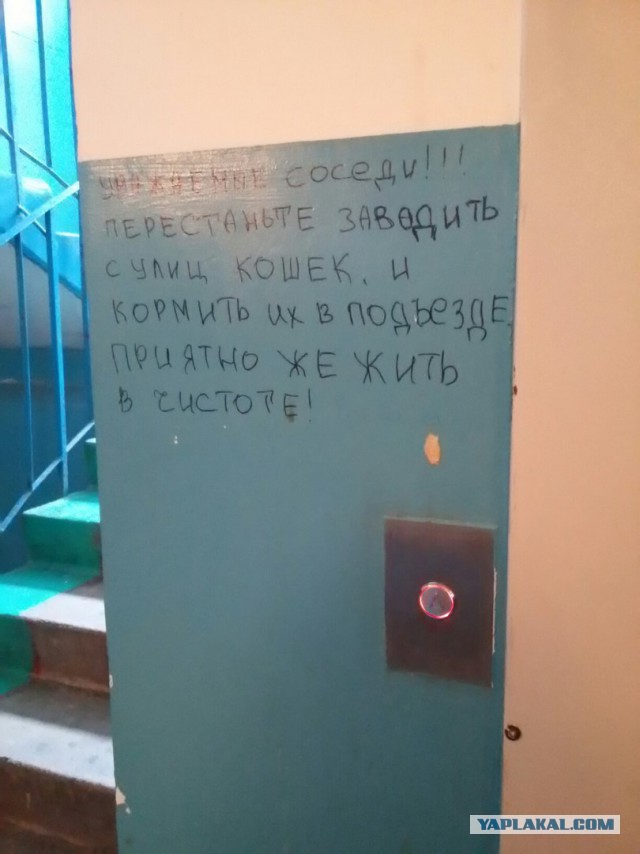 УВАЖАЕМЫЕ СОСЕДИ!!!
ПЕРЕСТАНЬТЕ ЗАВОДИТЬ
С УЛИЦ КОШЕК, И
КОРМИТЬ ИХ В ПОДЪЕЗДЕ,
ПРИЯТНО ЖЕ ЖИТЬ
В ЧИСТОТЕ!
YAPLAKAL.COM